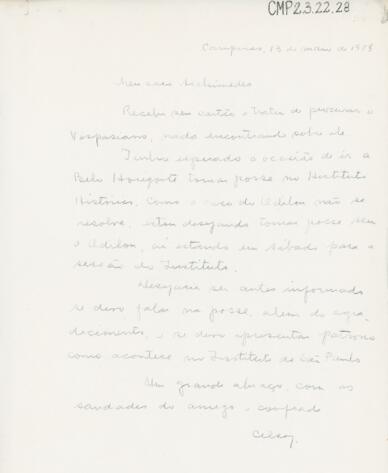 CMP2.3.22.28
Campinas, 13 de maio de 19
Meu caro Archimedes
Recebi seu cartão e tratei de procurar o
Vespasiano, nada encontrando sobre ele.
Tenho esperado a ocasião de ir a
Belo Horizonte tomar posse no Instituto
Histórico. Como o caso do Odilon não se
resolve, estou desejando tomar posse sem
o Odilon, aí estando em sábado para a
sessão do Instituto.
Desejaria ser antes informado
se devo falar na posse, alem do agra-
decimento, e se devo apresentar patrono
como acontece no Instituto de São Paulo
Um grande abraço, com as
saudades do amigo e confrade
Celso